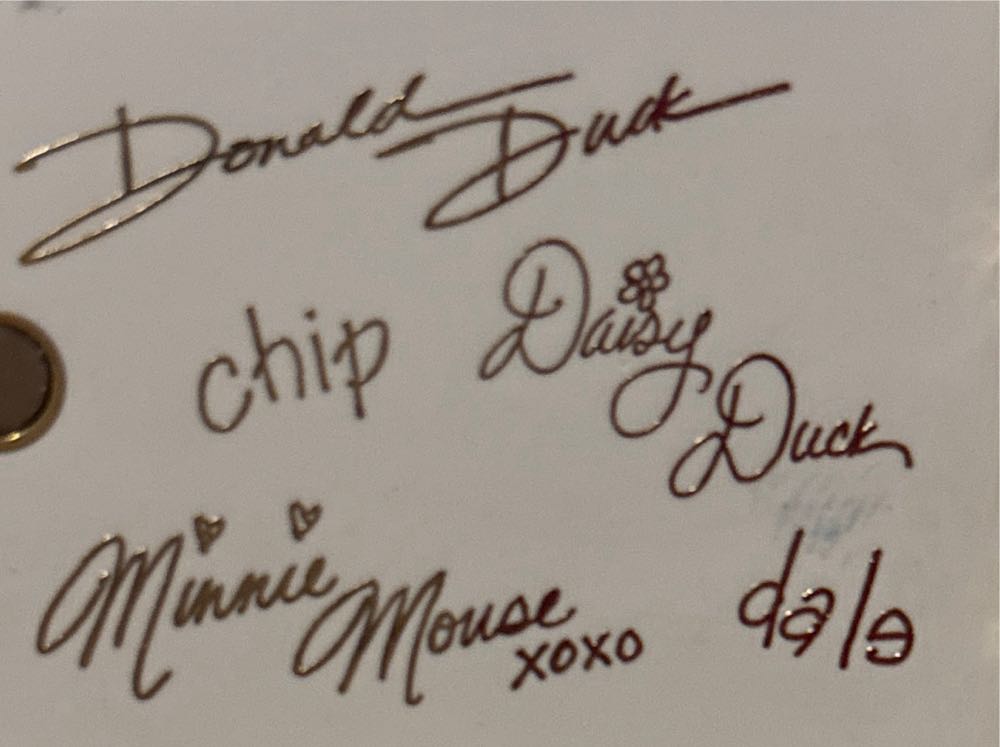 Donald Duck
chip
Daisy
Duck
Minnie
Mouse
xoxo
dale